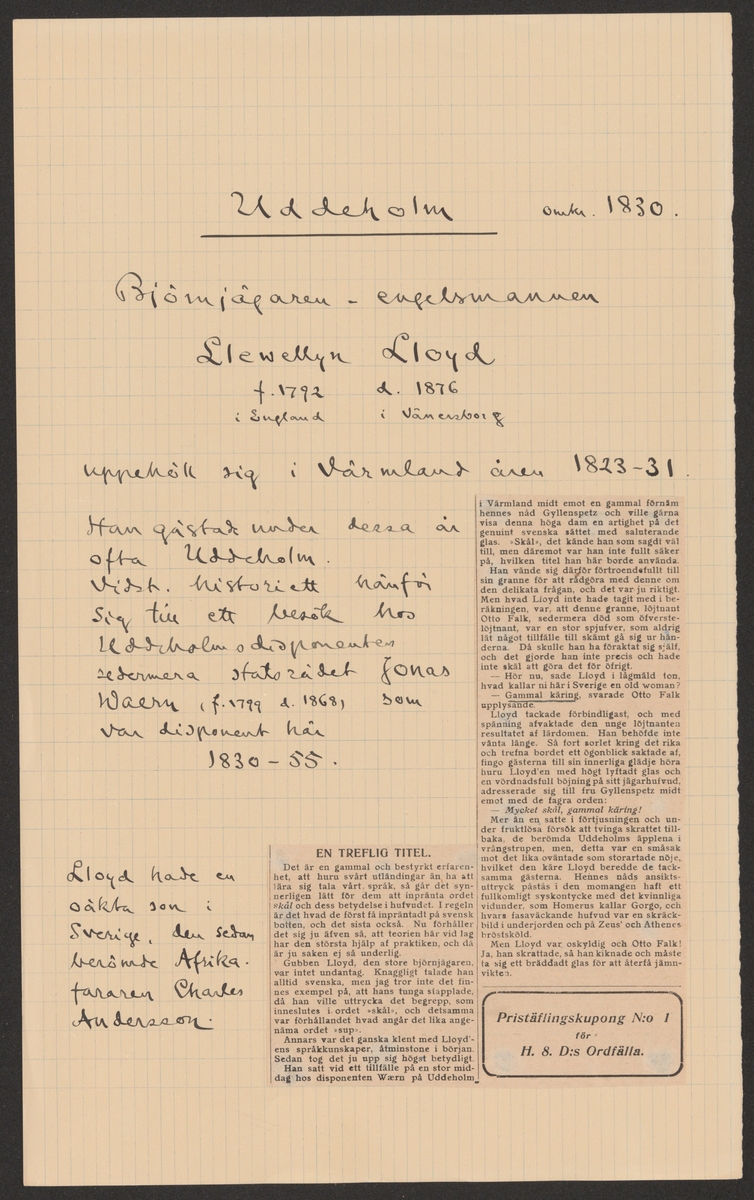 Uddeholm omkr. 1830.
Björnjägaren - engelsmannen
Llewellyn Lloyd
f. 1792 d. 1876
i England i Vänersborg
uppehöll sig i Värmland åren 1823-31.
Han gästade under dessa år
ofta Uddeholm.
Vidst. historiett hänför
sig till ett besök hos
Uddeholmsdisponenten
sedermera statsrådet Jonas
Waern, (f. 1799 d. 1868) som
var disponent här
1830-55.
Lloyd hade en
oäkta son i
Sverige, den sedan
berömde Afrika-
fararen Charles
Andersson.
EN TREFLIG TITEL.
Det är en gammal och bestyrkt erfaren-
het, att huru svårt utländingar än ha att
lära sig tala vårt språk, så går det syn-
nerligen lätt för dem att inpränta ordet
skål och dess betydelse i hufvudet. I regeln
är det hvad de först få inpräntadt på svensk
botten, och det sista också. Nu förhåller
det sig ju äfven så, att teorien här vid lag
har den största hjälp af praktiken, och då
är ju saken ej så underlig.
Gubben Lloyd, den store björnjägaren,
var intet undantag. Knaggligt talade han
alltid svenska, men jag tror inte det fin-
nes exempel på, att hans tunga slapplade,
då han ville uttrycka det begrepp, som
inneslutes i ordet »skål», och detsamma
var förhållandet hvad angår det lika ange-
näma ordet »sup».
Annars var det ganska klent med Lloyd'-
ens språkkunskaper, åtminstone i början.
Sedan tog det ju upp sig högst betydligt.
Han satt vid ett tillfälle på en stor mid-
dag hos disponenten Wærn på Uddeholm
i Värmland midt emot en gammal förnäm
hennes nåd Gyllenspetz och ville gärna
visa denna höga dam en artighet på det
genuint svenska sättet med saluterande
glas. »Skål», det kände han som sagdt väl
till, men däremot var han inte fullt säker
på, hvilken titel han här borde använda.
Han vände sig därför förtroendefullt till
sin granne för att rådgöra med denne om
den delikata frågan, och det var ju riktigt.
Men hvad Lloyd inte hade tagit med i be-
räkningen, var, att denne granne, löjtnant
Otto Falk, sedermera död som öfverste-
löjtnant, var en stor spjufver, som aldrig
lät något tillfälle till skämt gå sig ur hän-
derna. Då skulle han ha föraktat sig själf,
och det gjorde han inte precis och hade
inte skäl att göra det för öfrigt.
— Hör nu, sade Lloyd i lågmäld ton,
hvad kallar ni här i Sverige en old woman?
— Gammal käring, svarade Otto Falk
upplysande.
Lloyd tackade förbindligast, och med
spänning afvaktade den unge löjtnanten
resultatet af lärdomen. Han behöfde inte
vänta länge. Så fort sorlet kring det rika
och trefna bordet ett ögonblick saktade af,
fingo gästerna till sin innerliga glädje höra
huru Lloyd'en med högt lyftadt glas och
en vördnadsfull böjning på sitt jägarhufvud,
adresserade sig till fru Gyllenspetz midt
emot med de fagra orden:
— Mycket skål, gammal käring!
Mer än en satte i förtjusningen och un-
der fruktlösa försök att tvinga skrattet till-
baka, de berömda Uddeholms äpplena i
vrångstrupen, men, detta var en småsak
mot det lika oväntade som storartade nöje,
hvilket den käre Lloyd beredde de tack-
samma gästerna. Hennes nåds ansikts-
uttryck påstås i den momangen haft ett
fullkomligt syskontycke med det kvinnliga
vidunder, som Homerus kallar Gorgo, och
hvars fasaväckande hufvud var en skräck-
bild i underjorden och på Zeus' och Athenes
bröstsköld.
Men Lloyd var oskyldig och Otto Falk!
Ja, han skrattade, så han kiknade och måste
ta sig ett bräddadt glas för att återfå jämn-
vikten.
Pristäflingskupong N:o 1
för
H. 8. D:s Ordfälla.